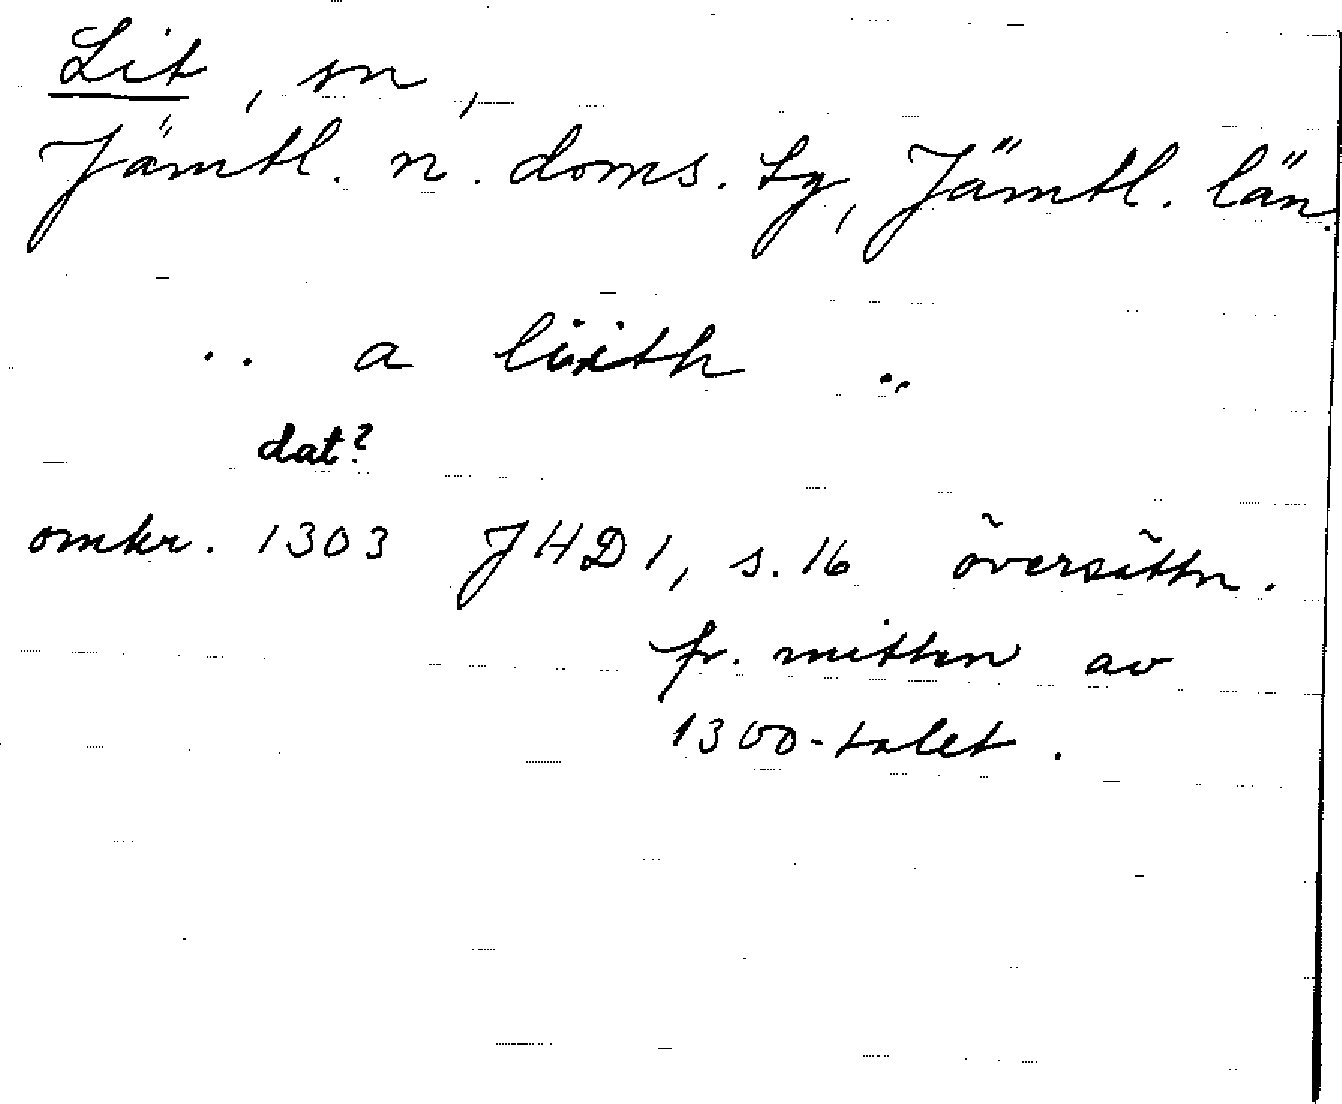 Lit, sn,
Jämtl. n. doms. Ly, Jämtl. län.
.. a liith ..
dat?
omkr. 1303 JHD1, s. 16 översättn.
fr. mitten av
1300-talet.